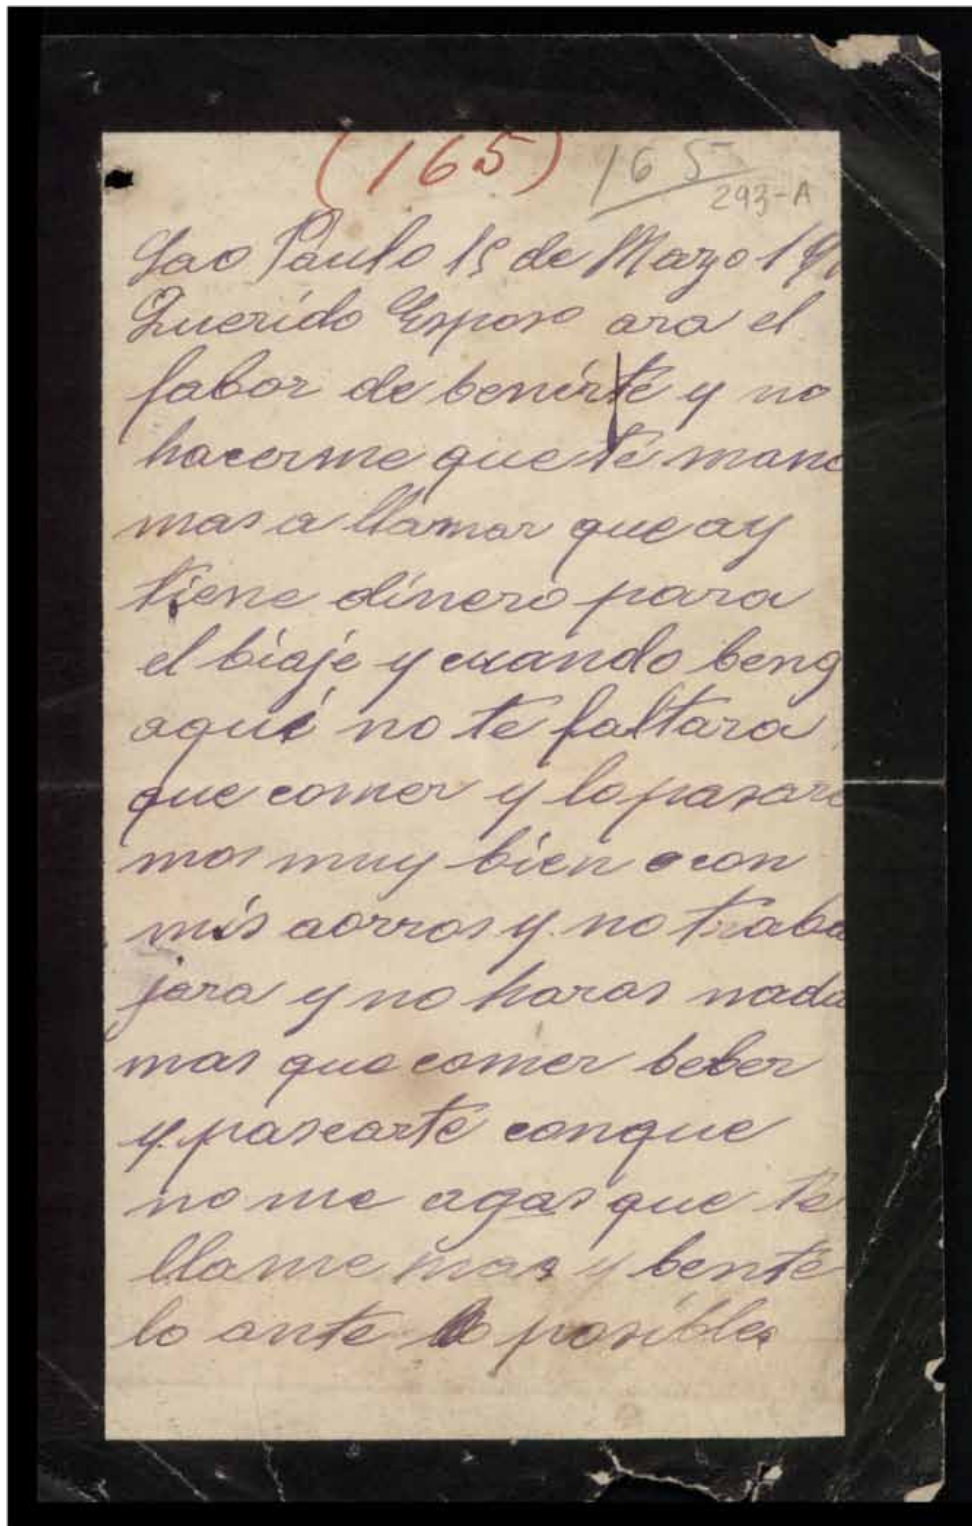 (165) 165
293-A
Sao Paulo 15 de Marzo 19
Querido Esposo ara el
fabor de benirte y no
hacerme que te mand
mas a llamar que ay
tiene dinero para
el biaje y cuando beng
aqui no te faltara
que comer y lo pasare
mos muy bien con
mis aorros y no traba
jara y no haras nada
mas que comer beber
y pasearte conque
no me agas que te
llame mas y bente
lo ante lo posible